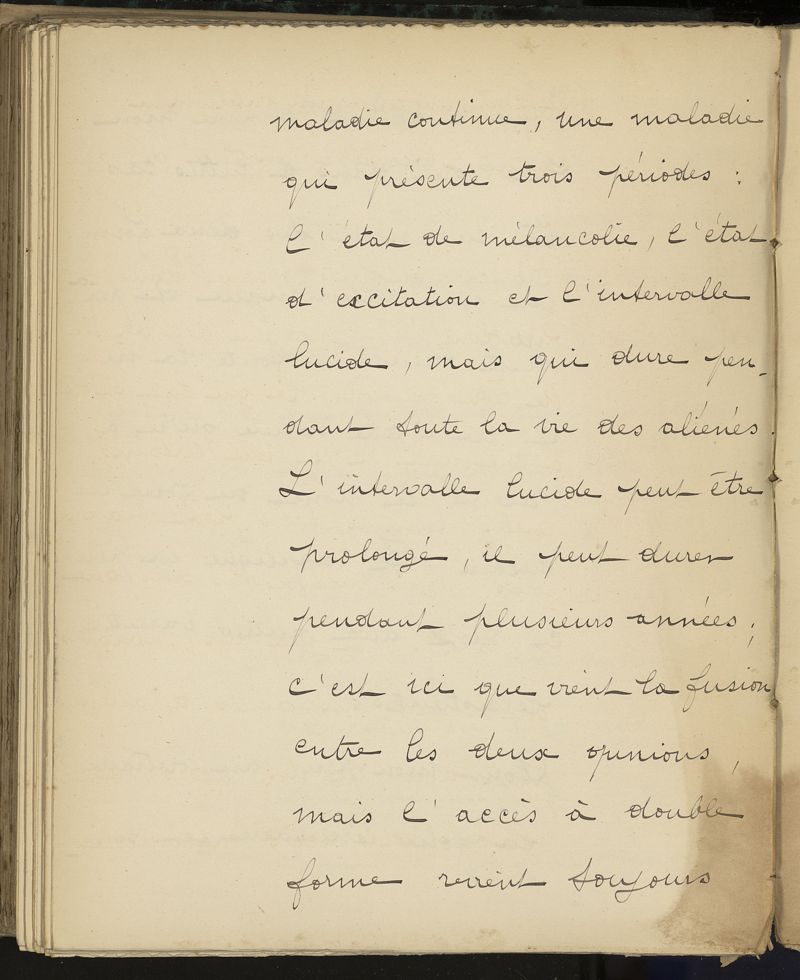 maladie continue, une maladie
qui présente trois périodes :
l'état de mélancolie, l'état
d'excitation et l'intervalle
lucide, mais qui dure pen-
dant toute la vie des aliénés.
L'intervalle lucide peut être
prolongé, il peut durer
pendant plusieurs années ;
c'est ici que vient la fusion
entre les deux opinions,
mais l'accès à double
forme revient toujours